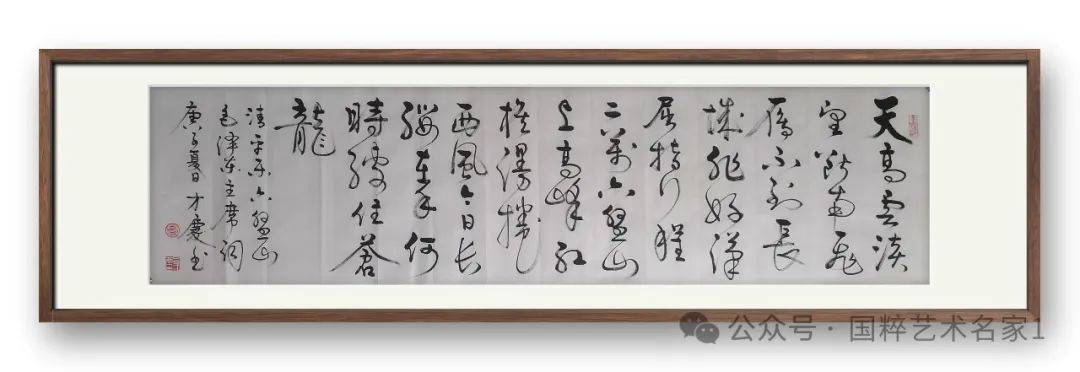 天高云淡
望断南飞
雁不到長
城非好漢
屈指行程
二萬六盤山
上高峰红
旗漫捲
西風今日长
缨在手何
時缚住蒼
龍
清平乐六盤山
毛泽东主席词
庚子夏日才慶书
公众号·国粹艺术名家1